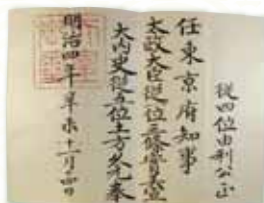 從四位由利公正
任東京府知事
太政大臣從一位三條實美宣
大内史從五位土方久元奉
明治四年辛未十一月四日